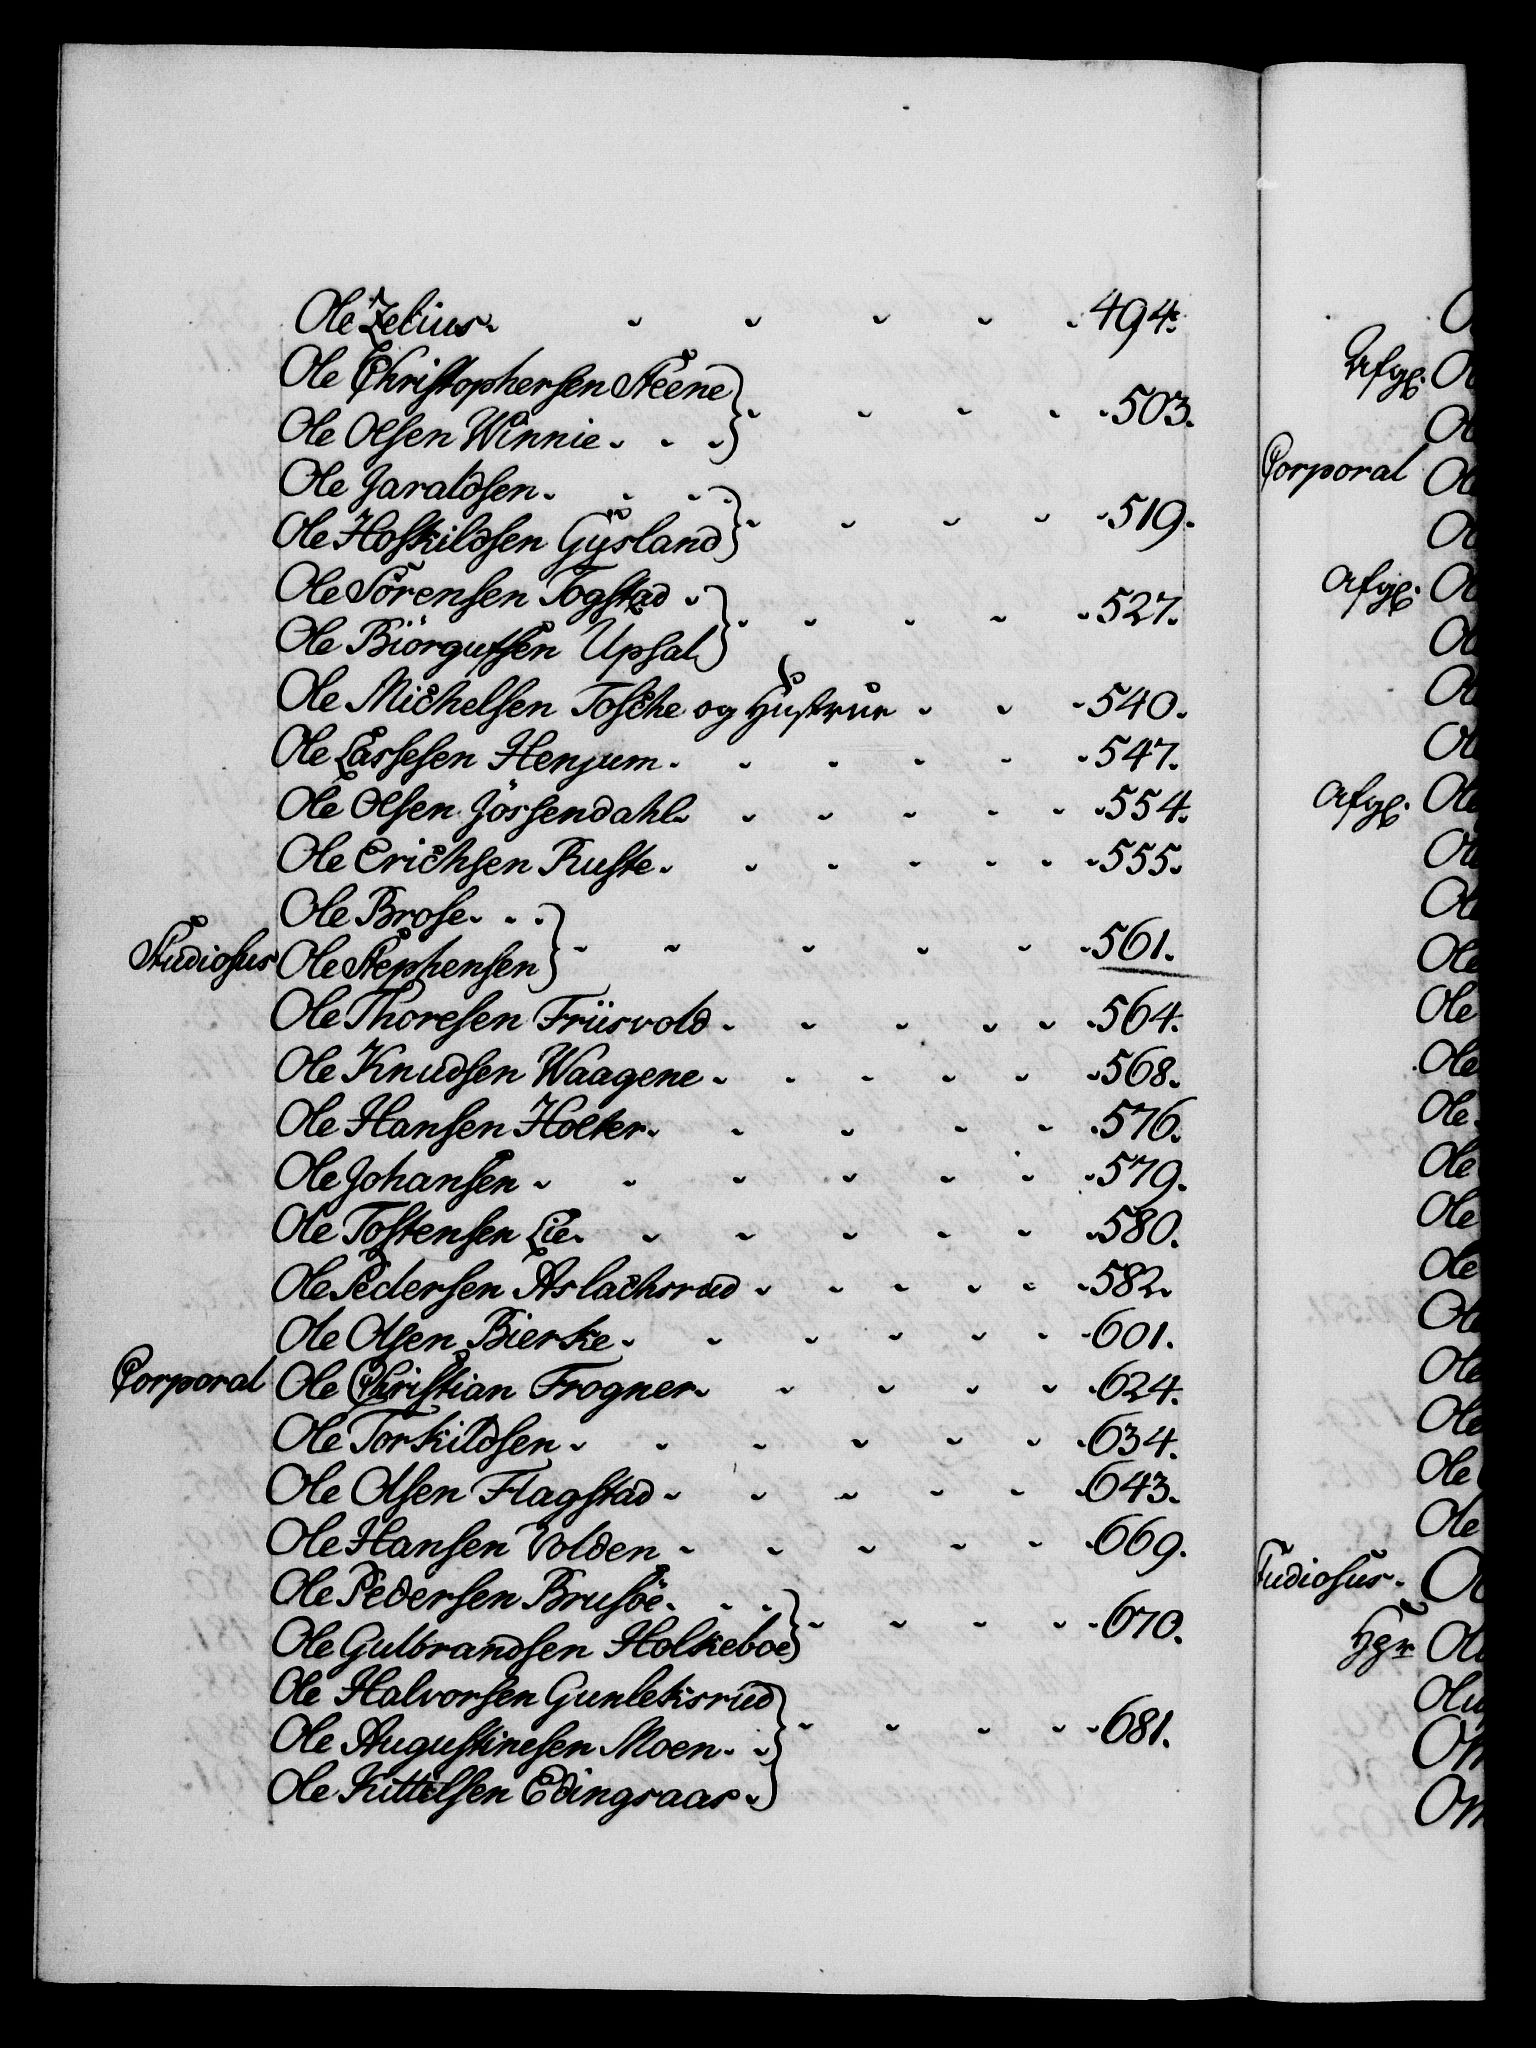 Ole Zelius. 494.
Ole Christophersen Steene
Ole Olsen Winnie. 503.
Ole Jaraldsen.
Ole Hoskildsen Gÿsland 519.
Ole Sörensen Togstad
Ole Biörgufsen Upsal 527.
Ole Michelsen Tosche og Hustrue 540.
Ole Lassesen Henjum. 547.
Ole Olsen Jössendahl. 554.
Ole Erichsen Ruste. 555.
Ole Brose.
Studiosus Ole Stephensen 561.
Ole Thoresen Friisvold 564.
Ole Knudsen Waagene 568.
Ole Hansen Holter. 576.
Ole Johansen 579.
Ole Tostensen Lie. 580.
Ole Pedersen Aslachsrud 582.
Ole Olsen Bierke. 601.
Corporal Ole Christian Frogner. 624.
Ole Torkildsen 634.
Ole Olsen Flagstad 643.
Ole Hansen Volden 669.
Ole Pedersen Brusöe.
Ole Gulbrandsen Holkeboe 670.
Ole Halvorsen Gunleksrud
Ole Augustinesen Moen. 681.
Ole Kittelsen Edingsaas.
Afg.
Corporal
Afg.
Afg.
Ole
Ole
Ole
Ole
Ole
Ole
Ole
Ole
Ole
Ole
Ole
Ole
Studiosus.
Hgr